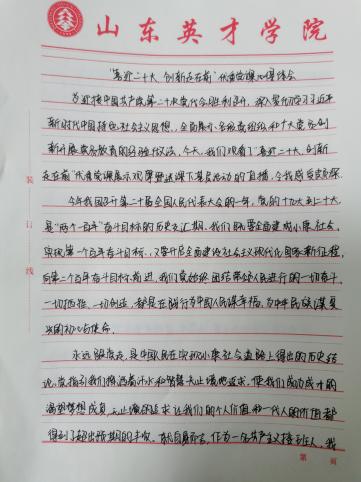 山东英才学院
"喜迎二十大、创新走在前"优秀党课心得体会
为迎接中国共产党第二十次党代会胜利召开，深入学习习近平
新时代中国特色社会主义思想，全面展示各级党组织和广大党员创
新开展党务教育的经验做法，今天，我们观看了"喜迎二十大、创新
走在前"优秀党课展示观摩暨送课下基层活动的直播，令我感受颇深。
今年我国召开第二十届全国人民代表大会的一年，党的十九大到二十大
是"两个一百年"奋斗目标的历史交汇期。我们既要全面建成小康社会，
实现第一个百年奋斗目标，又要开启全面建设社会主义现代化国家新征程，
向第二个百年奋斗目标前进，我们党始终团结带领人民进行的一切奋斗、
一切牺牲、一切创造，都是在践行为中国人民谋幸福，为中华民族谋复
兴的初心与使命。
永远跟党走，是中国人民在实现小康社会道路上得出的历史结
论，党指引我们挥洒着汗水和智慧无止境地追求，使我们成功成才的
渴望梦想成真，无止境的追求让我们的个人价值和一代人的价值都
得到了超出预期的丰收，就自身而言，作为一名共产主义接班人，我
第 页
装
订
线